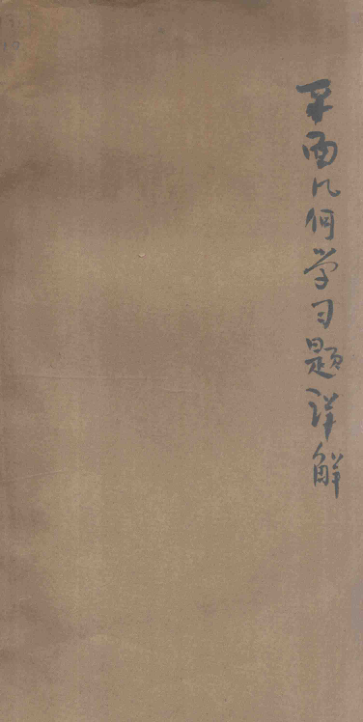 平面几何学习题詳解